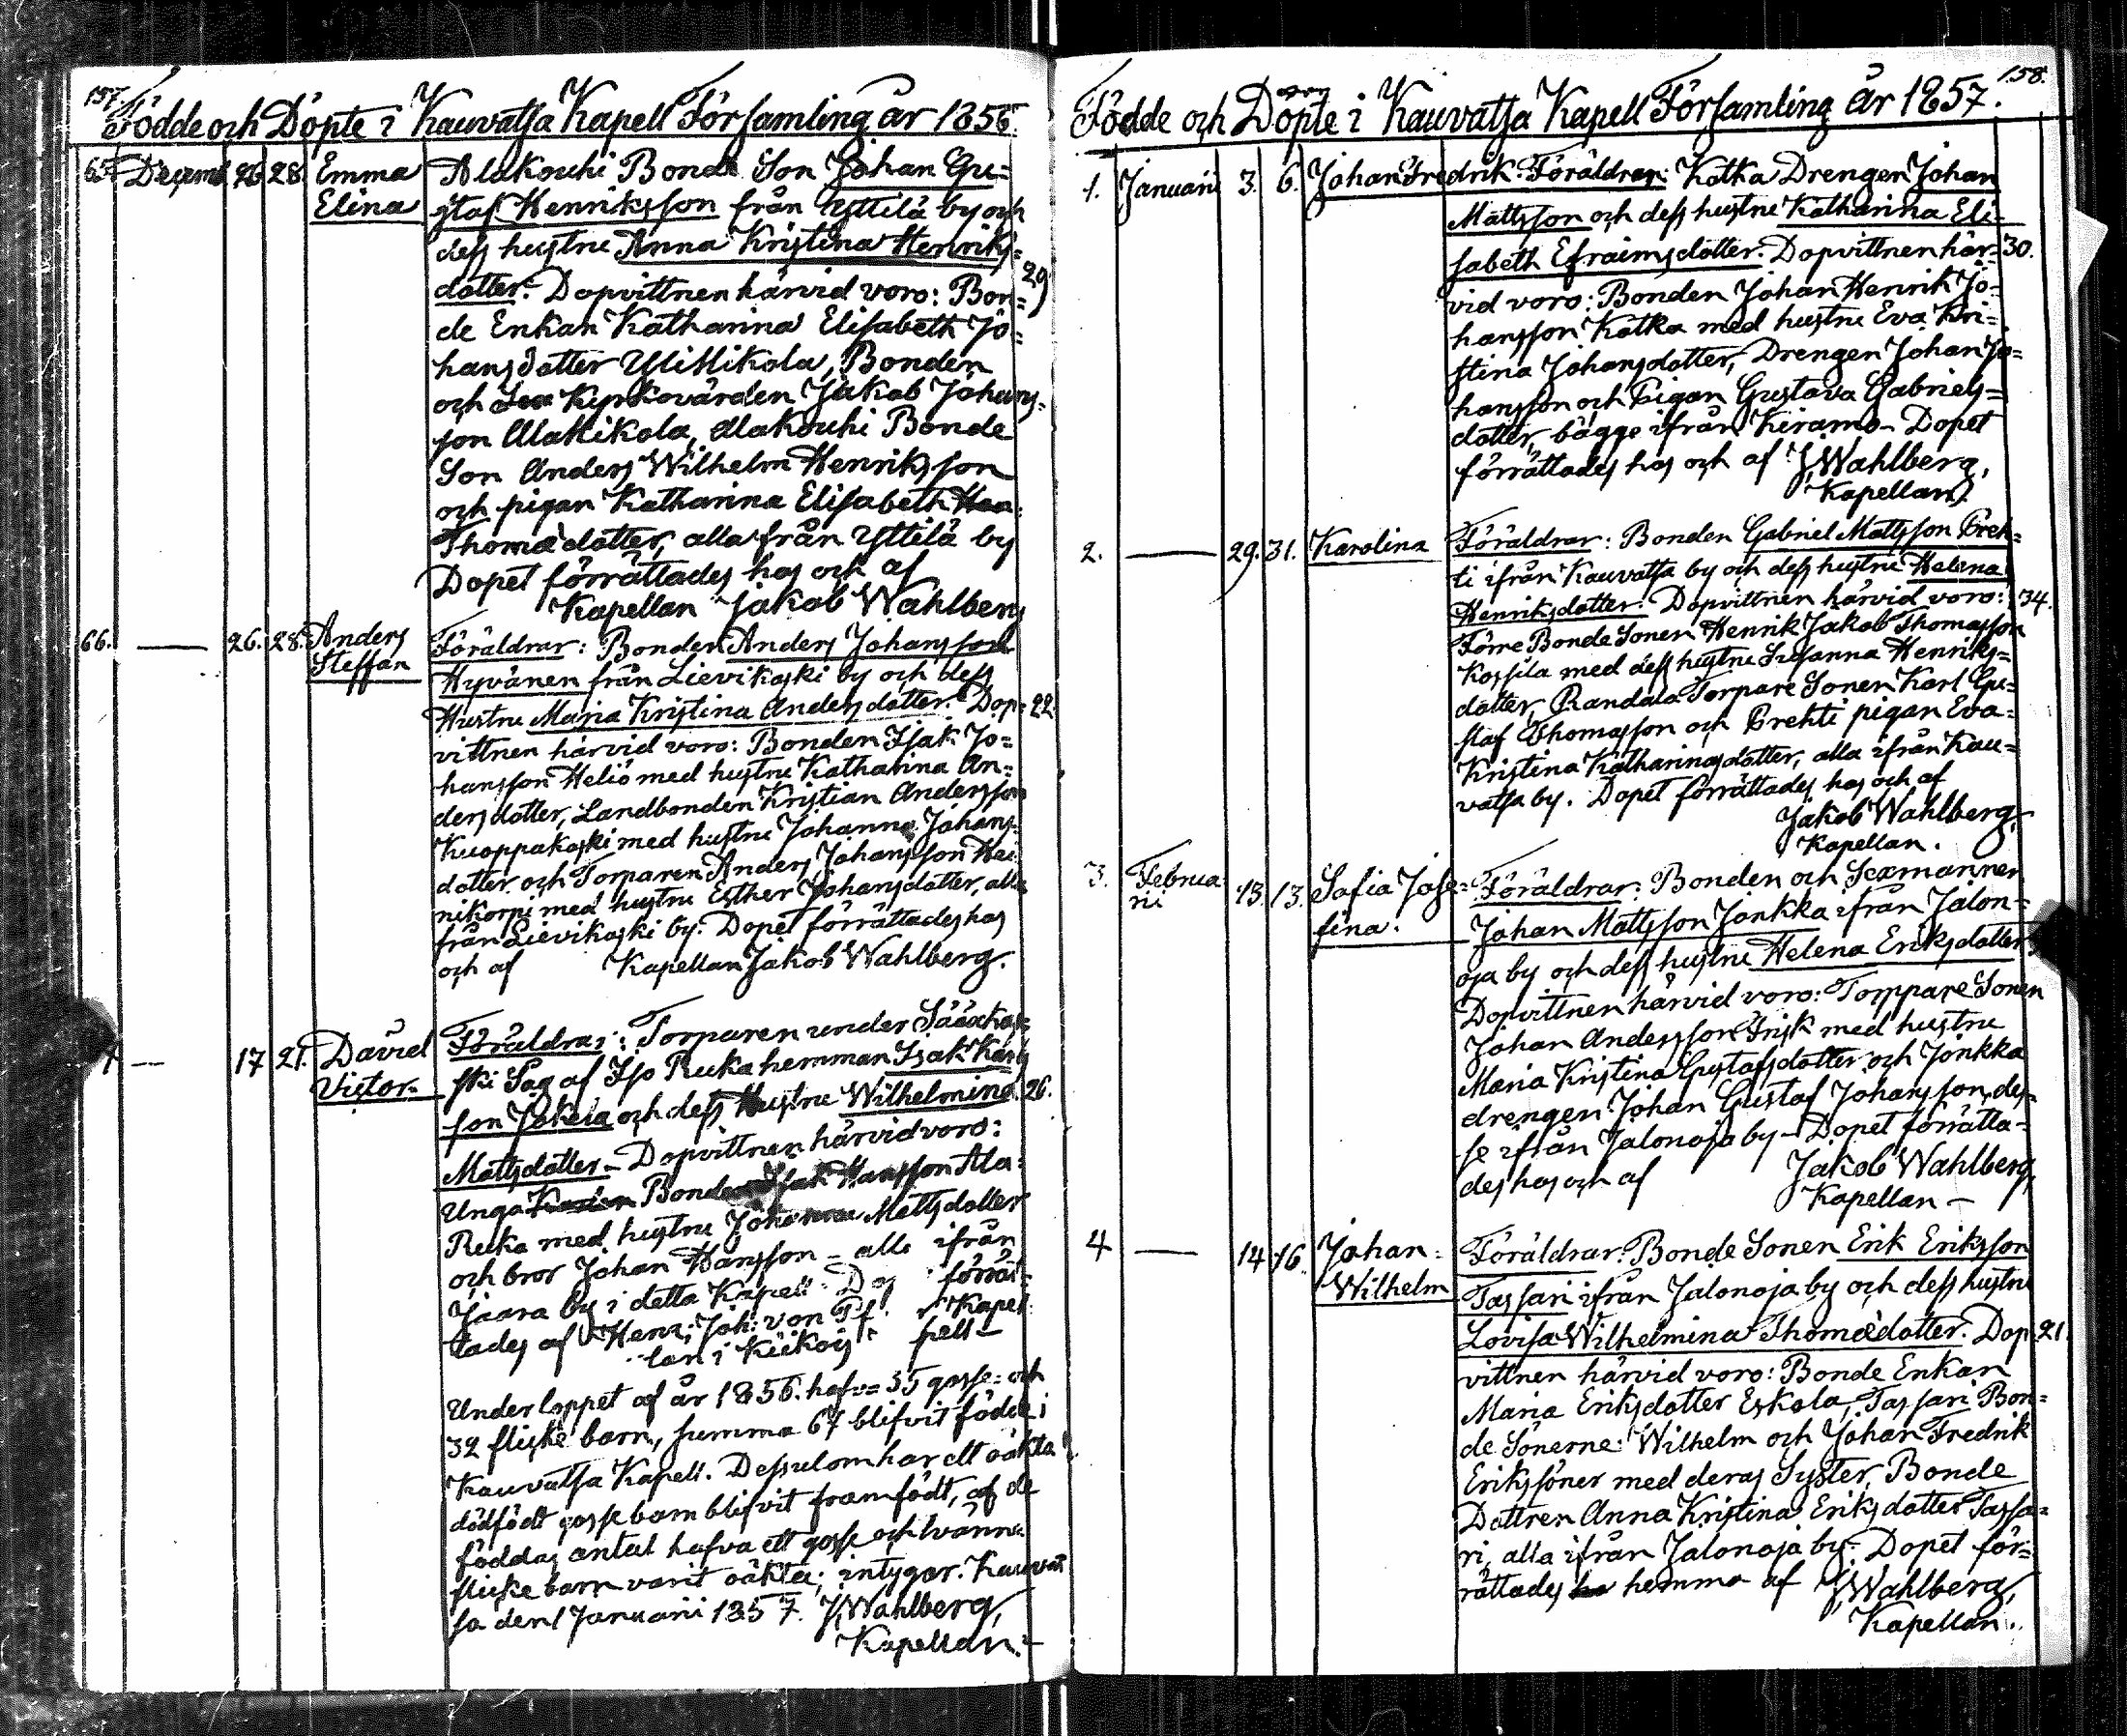 157.
Födde och Döpte i Kauvatsa Kapell Församling år 1856.
65. Decemb. 26. 28. Emma Elina
Alakouhi Bonde Son Johan Gu=
staf Henriksson från Yttilä by och
dess hustru Anna Kristina Henriks=
dotter. Dopvittnen härvid voro: Bon= 29
de Enkan Katharina Elisabeth Jo=
hansdotter Ylikikola, Bonden
och Kyrkovärden Jakob Johans=
son Alakikola, Alakouhi Bonde
Son Anders Wilhelm Henriksson
och pigan Katharina Elisabeth
Thomædotter, alla från Yttilä by
Dopet förrättades hos och af
Kapellan Jakob Wahlberg
66. — 26. 28. Anders Steffan
Föräldrar: Bonden Anders Johansson
Hyvänen från Lievikoski by och dess
Hustru Maja Kristina Andersdotter. Dop= 22.
vittnen härvid voro: Bonden Isak Jo=
hansson Heliö med hustru Katharina An=
dersdotter, Landbonden Kristian Andersson
Kuoppakoski med hustru Johanna Johans=
dotter och Torparen Anders Johansson Hei
nikorpi med hustru Esther Johansdotter, alla
från Lievikoski by. Dopet förrättades hos
och af Kapellan Jakob Wahlberg.
— 17 21. David Victor.
Föräldrar: Torparen under Sääxko=
ski Såg af Iso Ruka hemman Isak Karls
son Jokela och dess Hustru Wilhelmina 26.
Mattsdotter. Dopvittnen härvid voro:
Unga Bonden Isak Hansson Ala=
Ruka med hustru Johanna Mattsdotter
och bror Johan Hansson — alla ifrån
Jaara by i detta Kapell. förrät=
tades af Henr: Joh: von Kapel
lan i Kiikois pell—
Under loppet af år 1856. hafva 35 gosse= och
32 flicke barn, summa 67 blifvit födde i
Kauvatsa Kapell. Dessutom har ett oäkta
dödfödt gosse barn blifvit framfödt, af de
föddas antal hafva ett gosse och tvänne
flicke barn varit oäkta; intygar. Kauvat
sa den 1 Januarii 1857. J. Wahlberg,
Kapellan.
158.
Födde och Döpte i Kauvatsa Kapell Församling år 1857.
1. Januarii 3. 6. Johan Fredrik
Föräldrar: Kotka Drengen Johan
Mattsson och dess hustru Katharina Eli=
sabeth Efraimsdotter. Dopvittnen här= 30.
vid voro: Bonden Johan Henrik Jo=
hansson Kotka med hustru Eva Kri=
stina Johansdotter, Drengen Johan Jo=
hansson och Pigan Gustava Gabriels=
dotter, bägge ifrån Keramo. Dopet
förrättades hos och af J. Wahlberg,
Kapellan.
2. — 29. 31. Karolina
Föräldrar: Bonden Gabriel Mattsson Preh=
ti ifrån Kauvatsa by och dess hustru Helena
Henriksdotter. Dopvittnen härvid voro: 34.
Förre Bonde Sonen Henrik Jakob Thomasson
Kossila med dess hustru Susanna Henriks=
dotter, Randala Torpare Sonen Karl Gu=
staf Thomasson och Prehti pigan Eva=
Kristina Katharinasdotter, alla ifrån Kau=
vatsa by. Dopet förrättades hos och af
Jakob Wahlberg,
Kapellan.
3. Februa rii 13. 13. Sofia Jose= fina.
Föräldrar: Bonden och Sexmannen
Johan Mattsson Jonkka ifrån Jalon=
oja by och dess hustru Helena Eriksdotter
Dopvittnen härvid voro: Torppare Sonen
Johan Andersson Frisk med hustru
Maria Kristina Gustafsdotter och Jonkka
drengen Johan Gustaf Johansson, des=
se ifrån Jalonoja by. Dopet förrätta=
des hos och af Jakob Wahlberg,
Kapellan—
4 — 14 16. Johan= Wilhelm
Föräldrar: Bonde Sonen Erik Eriksson
Tassari ifrån Jalonoja by och dess hustru
Lovisa Wilhelmina Thomædotter. Dop= 21.
vittnen härvid voro: Bonde Enkan
Maria Eriksdotter Eskola, Tassari Bon=
de Sönerne: Wilhelm och Johan Fredrik
Erikssöner med deras Syster, Bonde
Dottren Anna Kristina Eriksdotter Tassa=
ri, alla ifrån Jalonoja by. Dopet för=
rättades hemma af J. Wahlberg,
Kapellan.